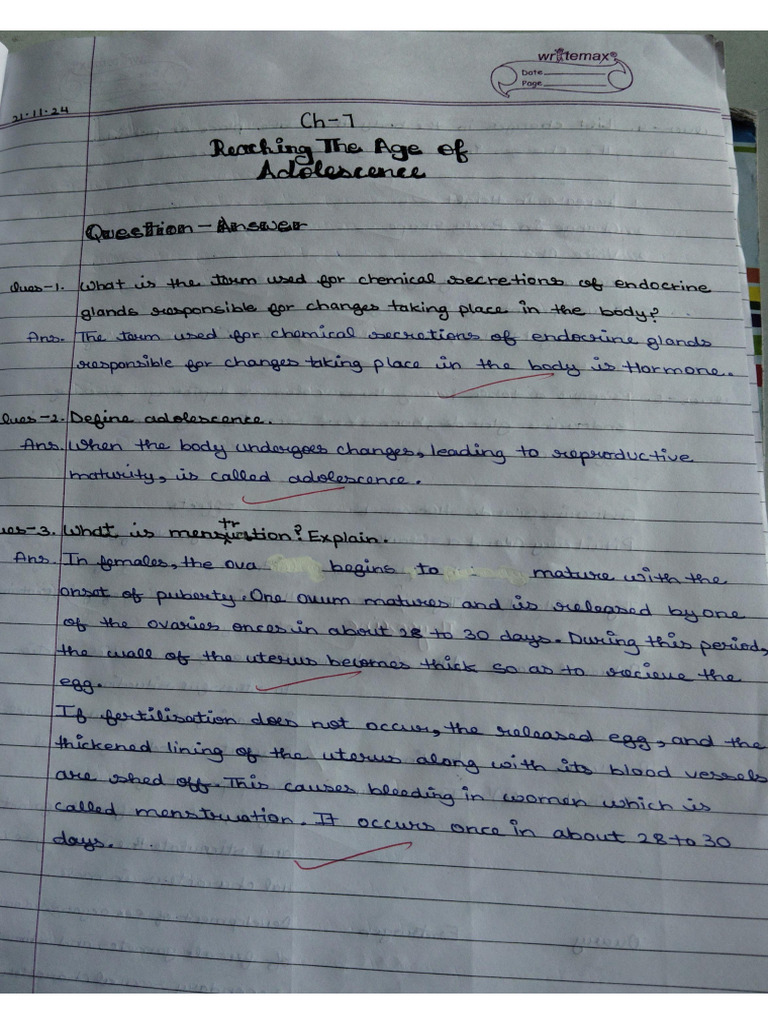 writemax®
Date
Page
21.11.24
Ch-7
Reaching The Age of
Adolescence
Question - Answer
Ques-1. What is the term used for chemical secretions of endocrine
glands responsible for changes taking place in the body?
Ans. The term used for chemical secretions of endocrine glands
responsible for changes taking place in the body is Hormone.
Ques-2. Define adolescence.
Ans. When the body undergoes changes, leading to reproductive
maturity, is called adolescence.
ues-3. What is menstruation? Explain.
Ans. In females, the ova begins to mature with the
onset of puberty. One ovum matures and is released by one
of the ovaries onces in about 28 to 30 days. During this period,
the wall of the uterus becomes thick so as to recieve the
egg.
If fertilisation does not occur, the released egg, and the
thickened lining of the uterus along with its blood vessels
are shed off. This causes bleeding in women which is
called menstruation. It occurs once in about 28 to 30
days.